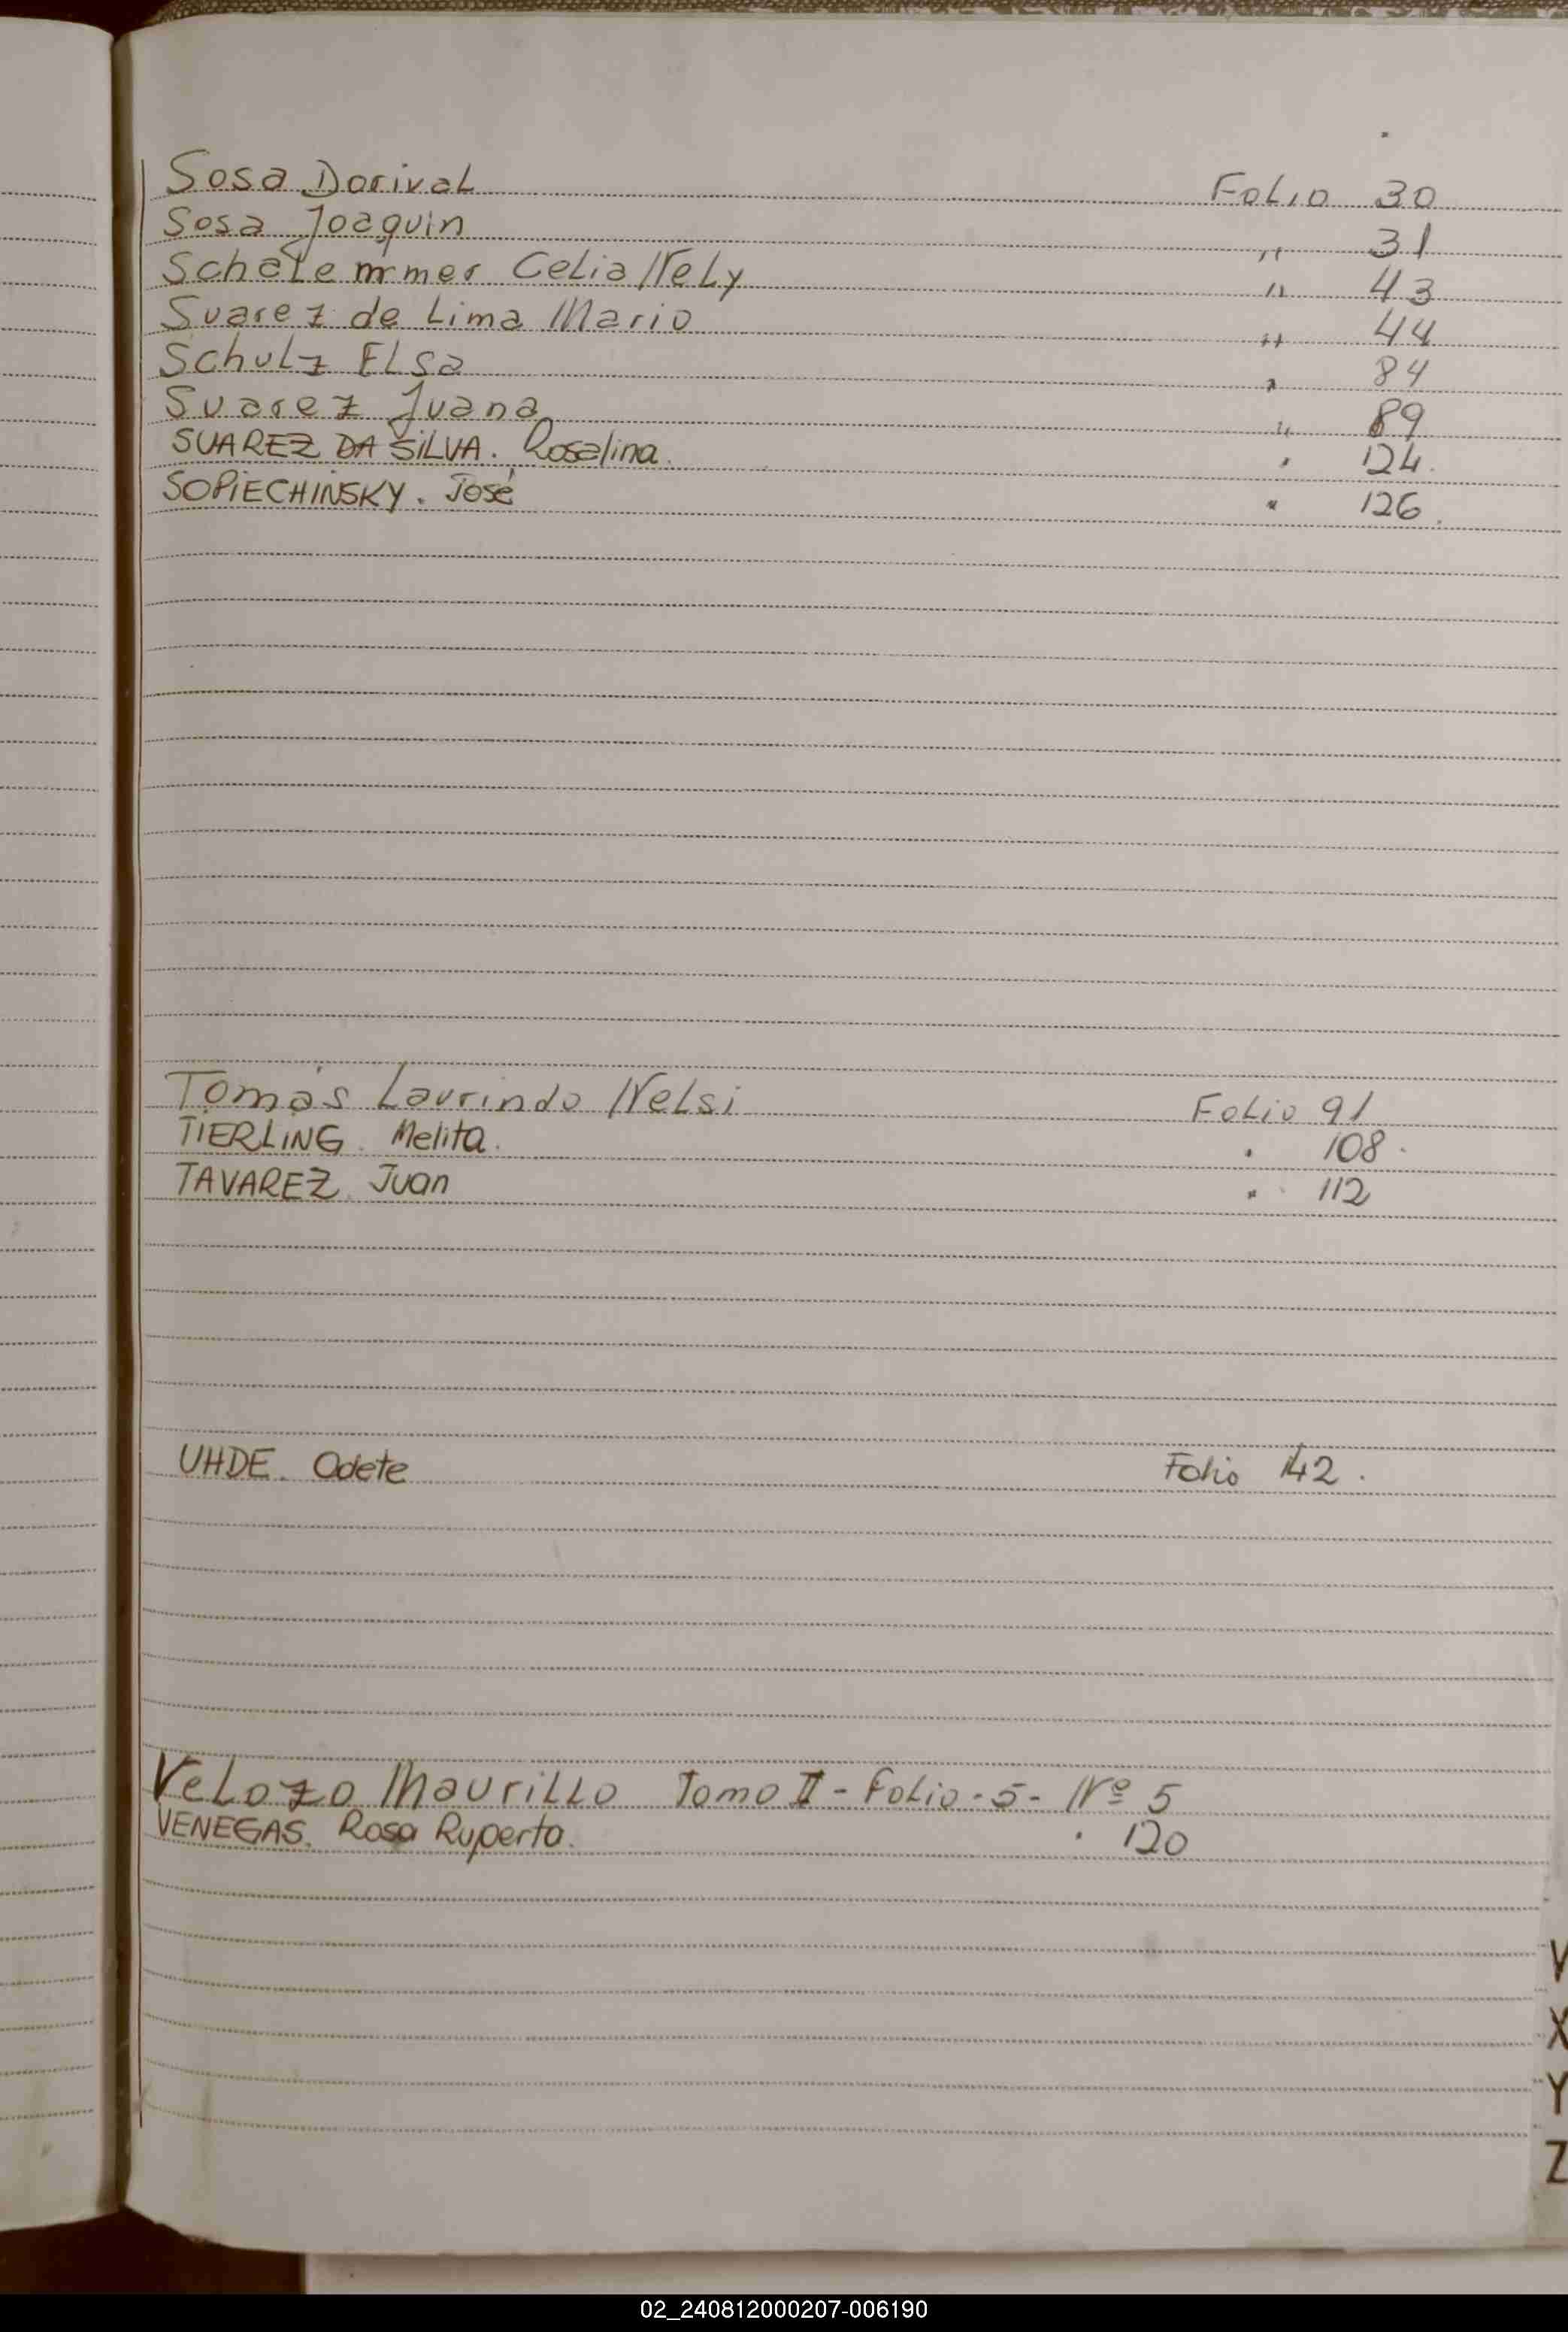 Sosa Dorival Folio 30
Sosa Joaquin " 31
Schalemmer Celia Nely " 43
Suarez de Lima Mario " 44
Schulz Elsa " 84
Suarez Juana " 89
SUAREZ DA SILVA. Rosalina. " 124.
SOPIECHINSKY. José " 126.
Tomás Laurindo Nelsi Folio 91
TIERLING. Melita. " 108.
TAVAREZ. Juan " 112
UHDE. Odete Folio 142.
Velozo Maurillo Tomo II - Folio - 5 - Nº 5
VENEGAS. Rosa Ruperta. " 120
V
X
Y
Z
02_240812000207-006190